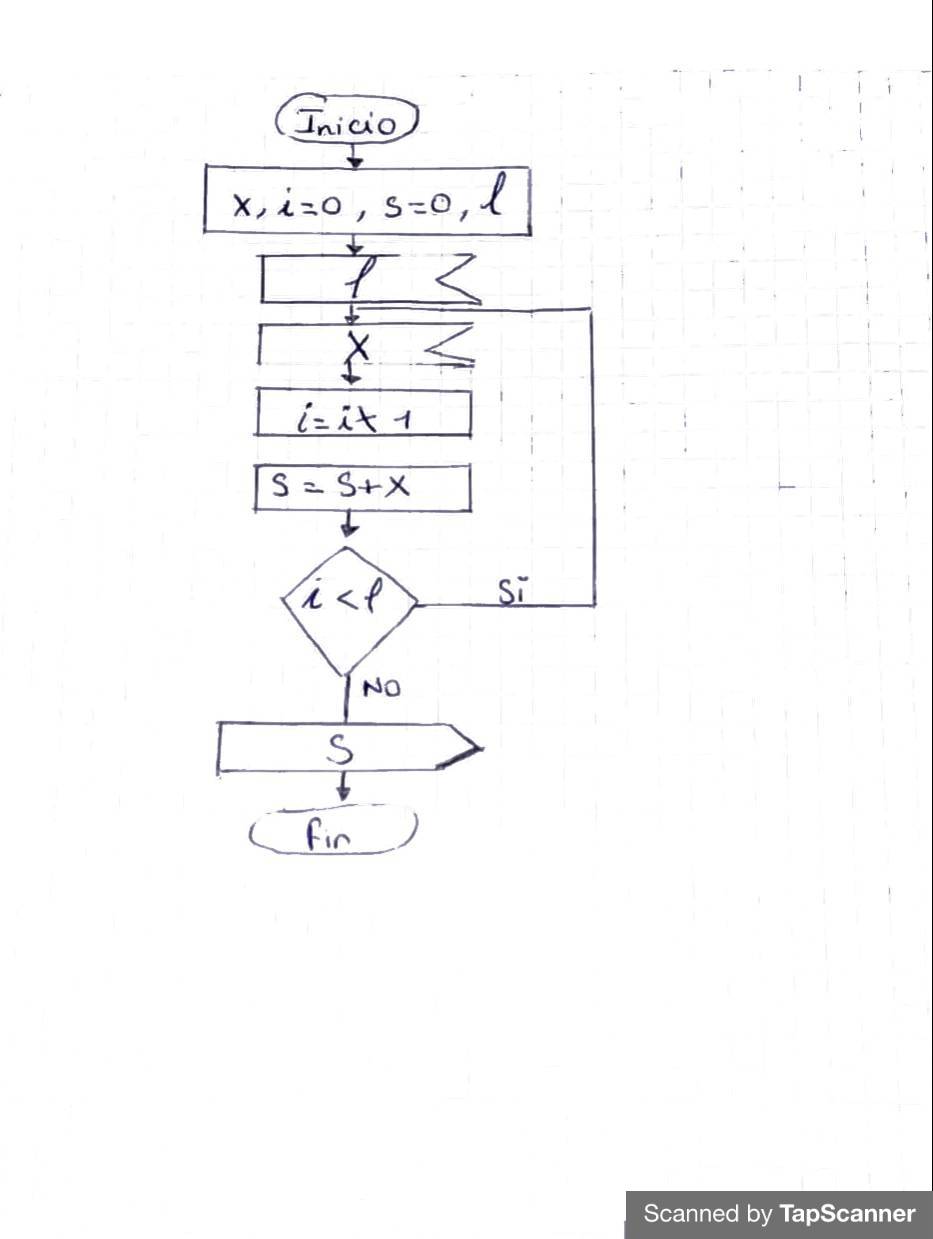 Inicio
x, i=0, s=0, l
l
X
i=i+1
S = S+X
i<l
Sí
NO
S
fin
Scanned by TapScanner